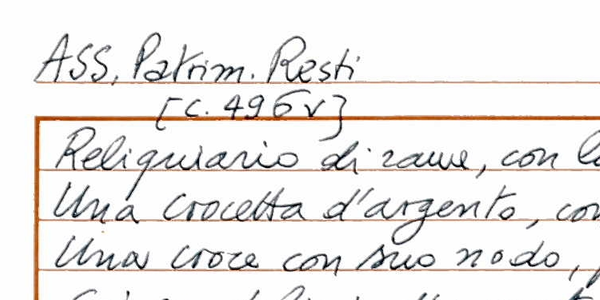 ASS. Patrim. Resti
[c. 496v]
Reliquiario di rame, con
Una crocetta d'argento, con
Una croce con suo nodo,